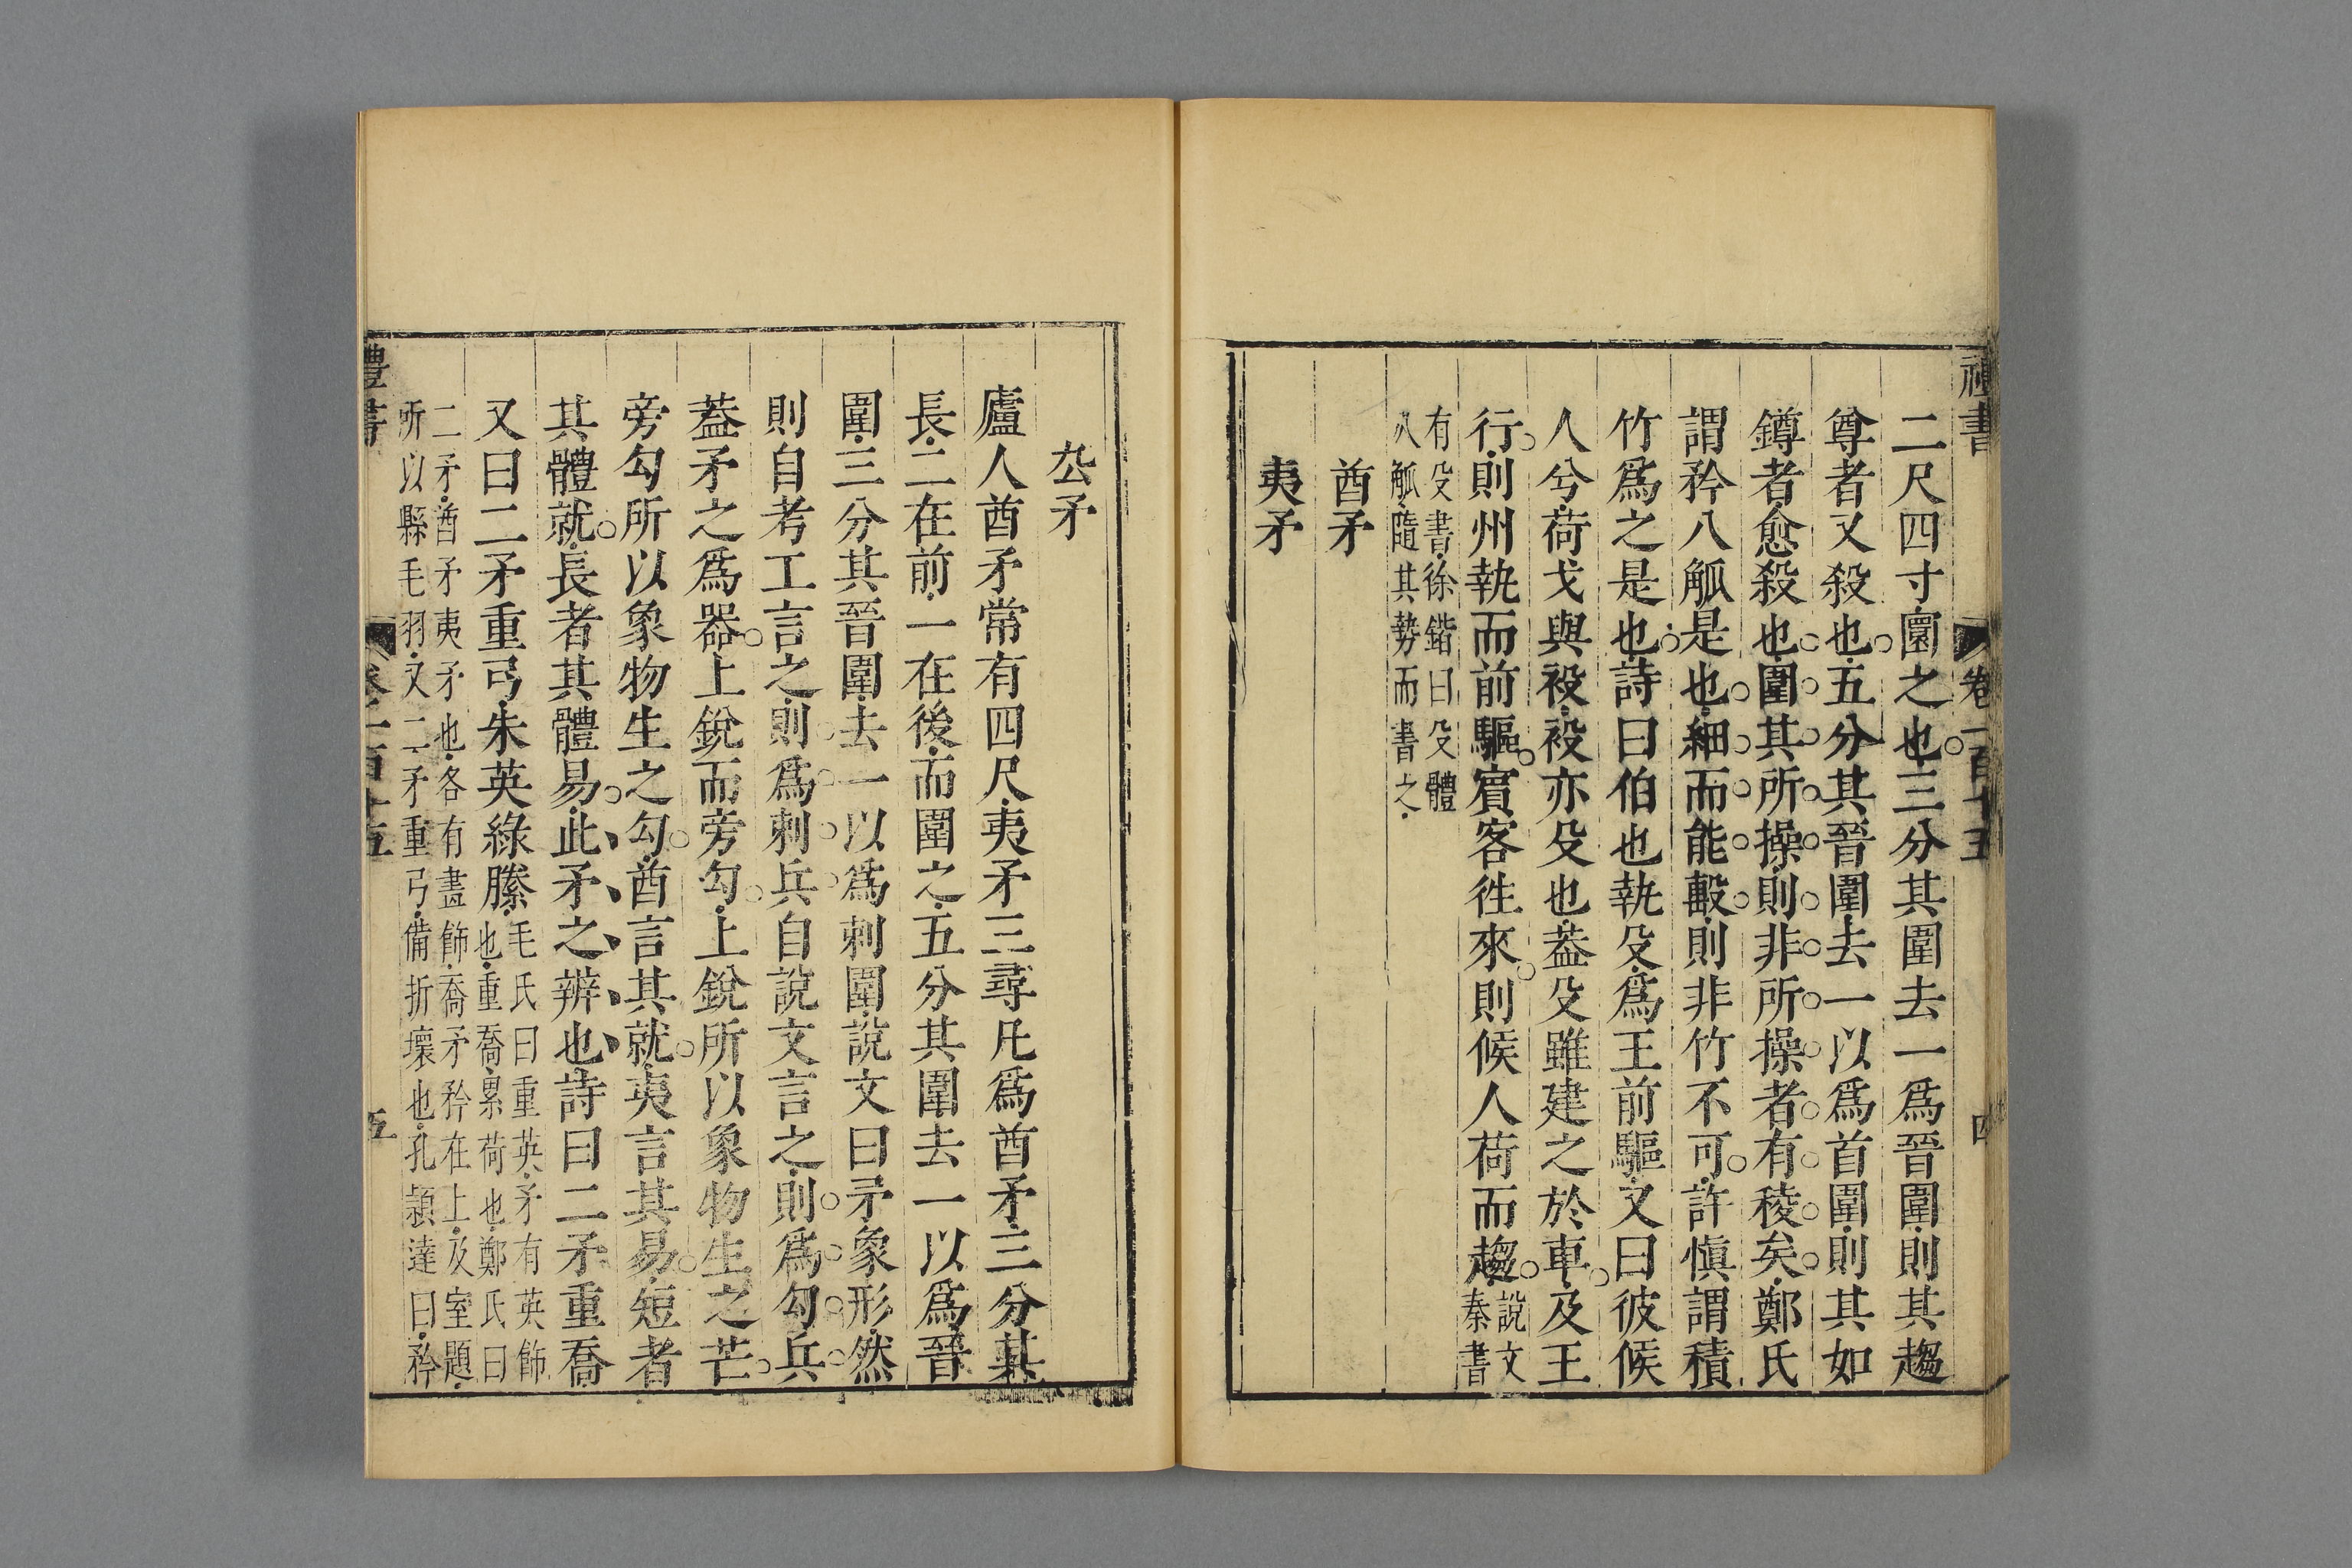 禮書
卷一百十五
四
二尺四寸圜之也三分其圍去一爲晉圍則其趨
尊者又殺也五分其晉圍去一以爲首圍則其如
鐏者愈殺也圍其所操則非所操者有稜矣鄭氏
謂矜八觚是也細而能轂則非竹不可許慎謂積
竹爲之是也詩曰伯也執殳爲王前驅又曰彼候
人兮荷戈與祋祋亦殳也葢殳雖建之於車及王
行則州執而前驅賓客徃來則候人荷而趨說文秦書
有殳書徐鍇曰殳體
八觚隨其勢而書之
酋矛
夷矛
厹矛
廬人酋矛常有四尺夷矛三尋凡爲酋矛三分其
長二在前一在後而圍之五分其圍去一以爲晉
圍三分其晉圍去一以爲刺圍說文曰矛象形然
則自考工言之則爲刺兵自說文言之則爲勾兵
葢矛之爲器上銳而旁勾上銳所以象物生之芒
旁勾所以象物生之勾酋言其就夷言其易短者
其體就長者其體易此矛之辨也詩曰二矛重喬
又曰二矛重弓朱英綠縢毛氏曰重英矛有英飾也重喬累荷也鄭氏曰
二矛酋矛夷矛也各有畫飾喬矛矜在上及室題
所以縣毛羽又二矛重弓備折壞也孔頴達曰矜
禮書
卷一百十五
五